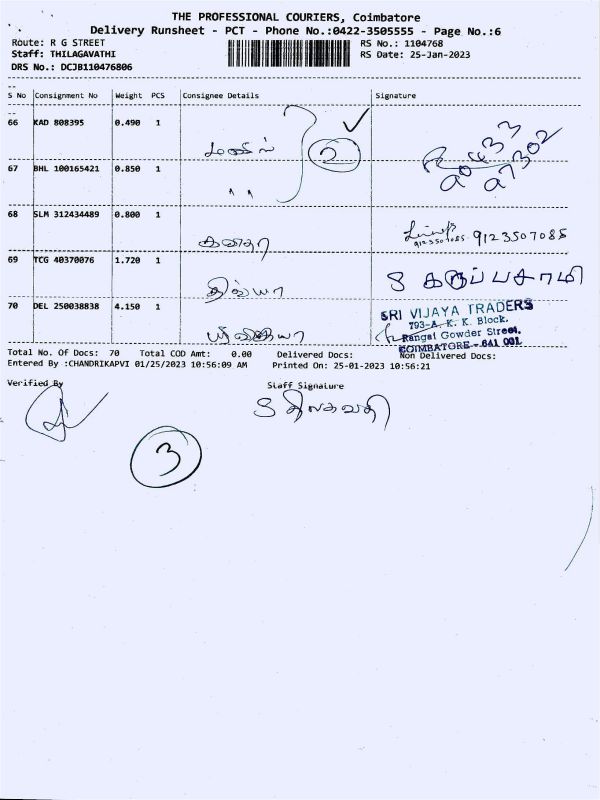 THE PROFESSIONAL COURIERS, Coimbatore
Delivery Runsheet - PCT - Phone No.:0422-3505555 - Page No.:6
Route: R G STREET RS No.: 1104768
Staff: THILAGAVATHI RS Date: 25-Jan-2023
DRS No.: DCJB110476806
S No Consignment No Weight PCS Consignee Details Signature
66 KAD 808395 0.490 1
2
67 BHL 100165421 0.850 1
" "
68 SLM 312434489 0.800 1
9123507085 9123507085
கவிதா
69 TCG 40370076 1.720 1
S கருப்பசாமி
திவ்யா
70 DEL 250038838 4.150 1
SRI VIJAYA TRADERS
793-A, K. K. Block,
Rangai Gowder Street,
COIMBATORE - 641 001.
Total No. Of Docs: 70 Total COD Amt: 0.00 Delivered Docs: Non Delivered Docs:
Entered By :CHANDRIKAPVI 01/25/2023 10:56:09 AM Printed On: 25-01-2023 10:56:21
Verified By Staff Signature
S திலகவதி
3